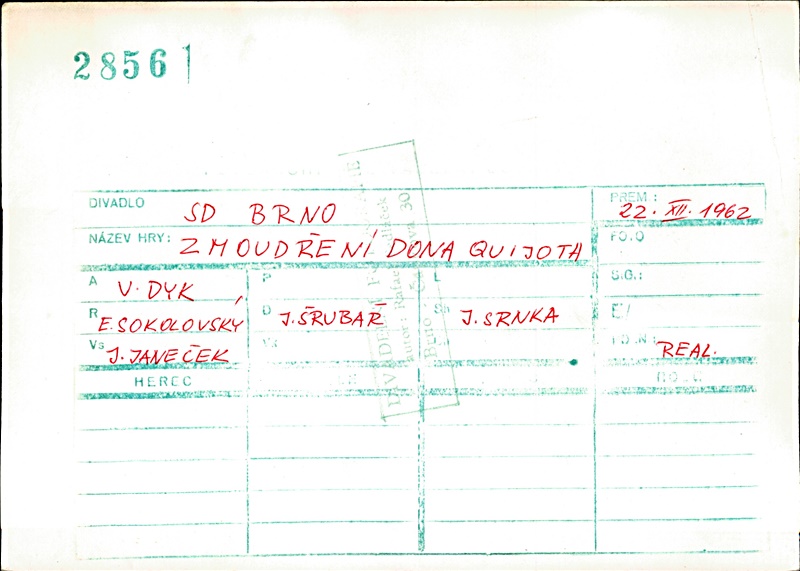 2856
DIVADLO SD BRNO
PREM: 22. XII. 1962
NÁZEV HRY: ZMOUDŘENÍ DONA QUIJOTA
FOTO
A V. DYK
P
L
S.G.:
R E. SOKOLOVSKÝ
J. ŠRUBAŘ
J. SRNKA
Vs J. JANEČEK
REAL.
HEREC
Brno
30